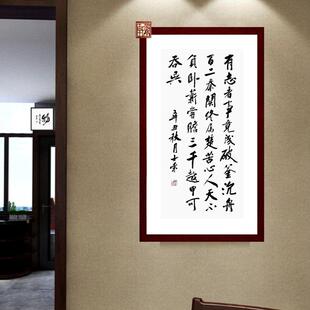 有志者事竟成破釜沉舟
百二秦關終属楚苦心人天不
負卧薪嘗膽三千越甲可
吞吳
辛丑秋月